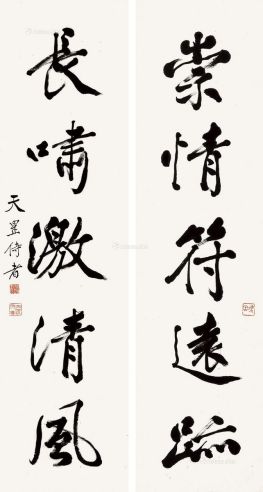 崇情符遠跡
長嘯激清風
天罡侍者